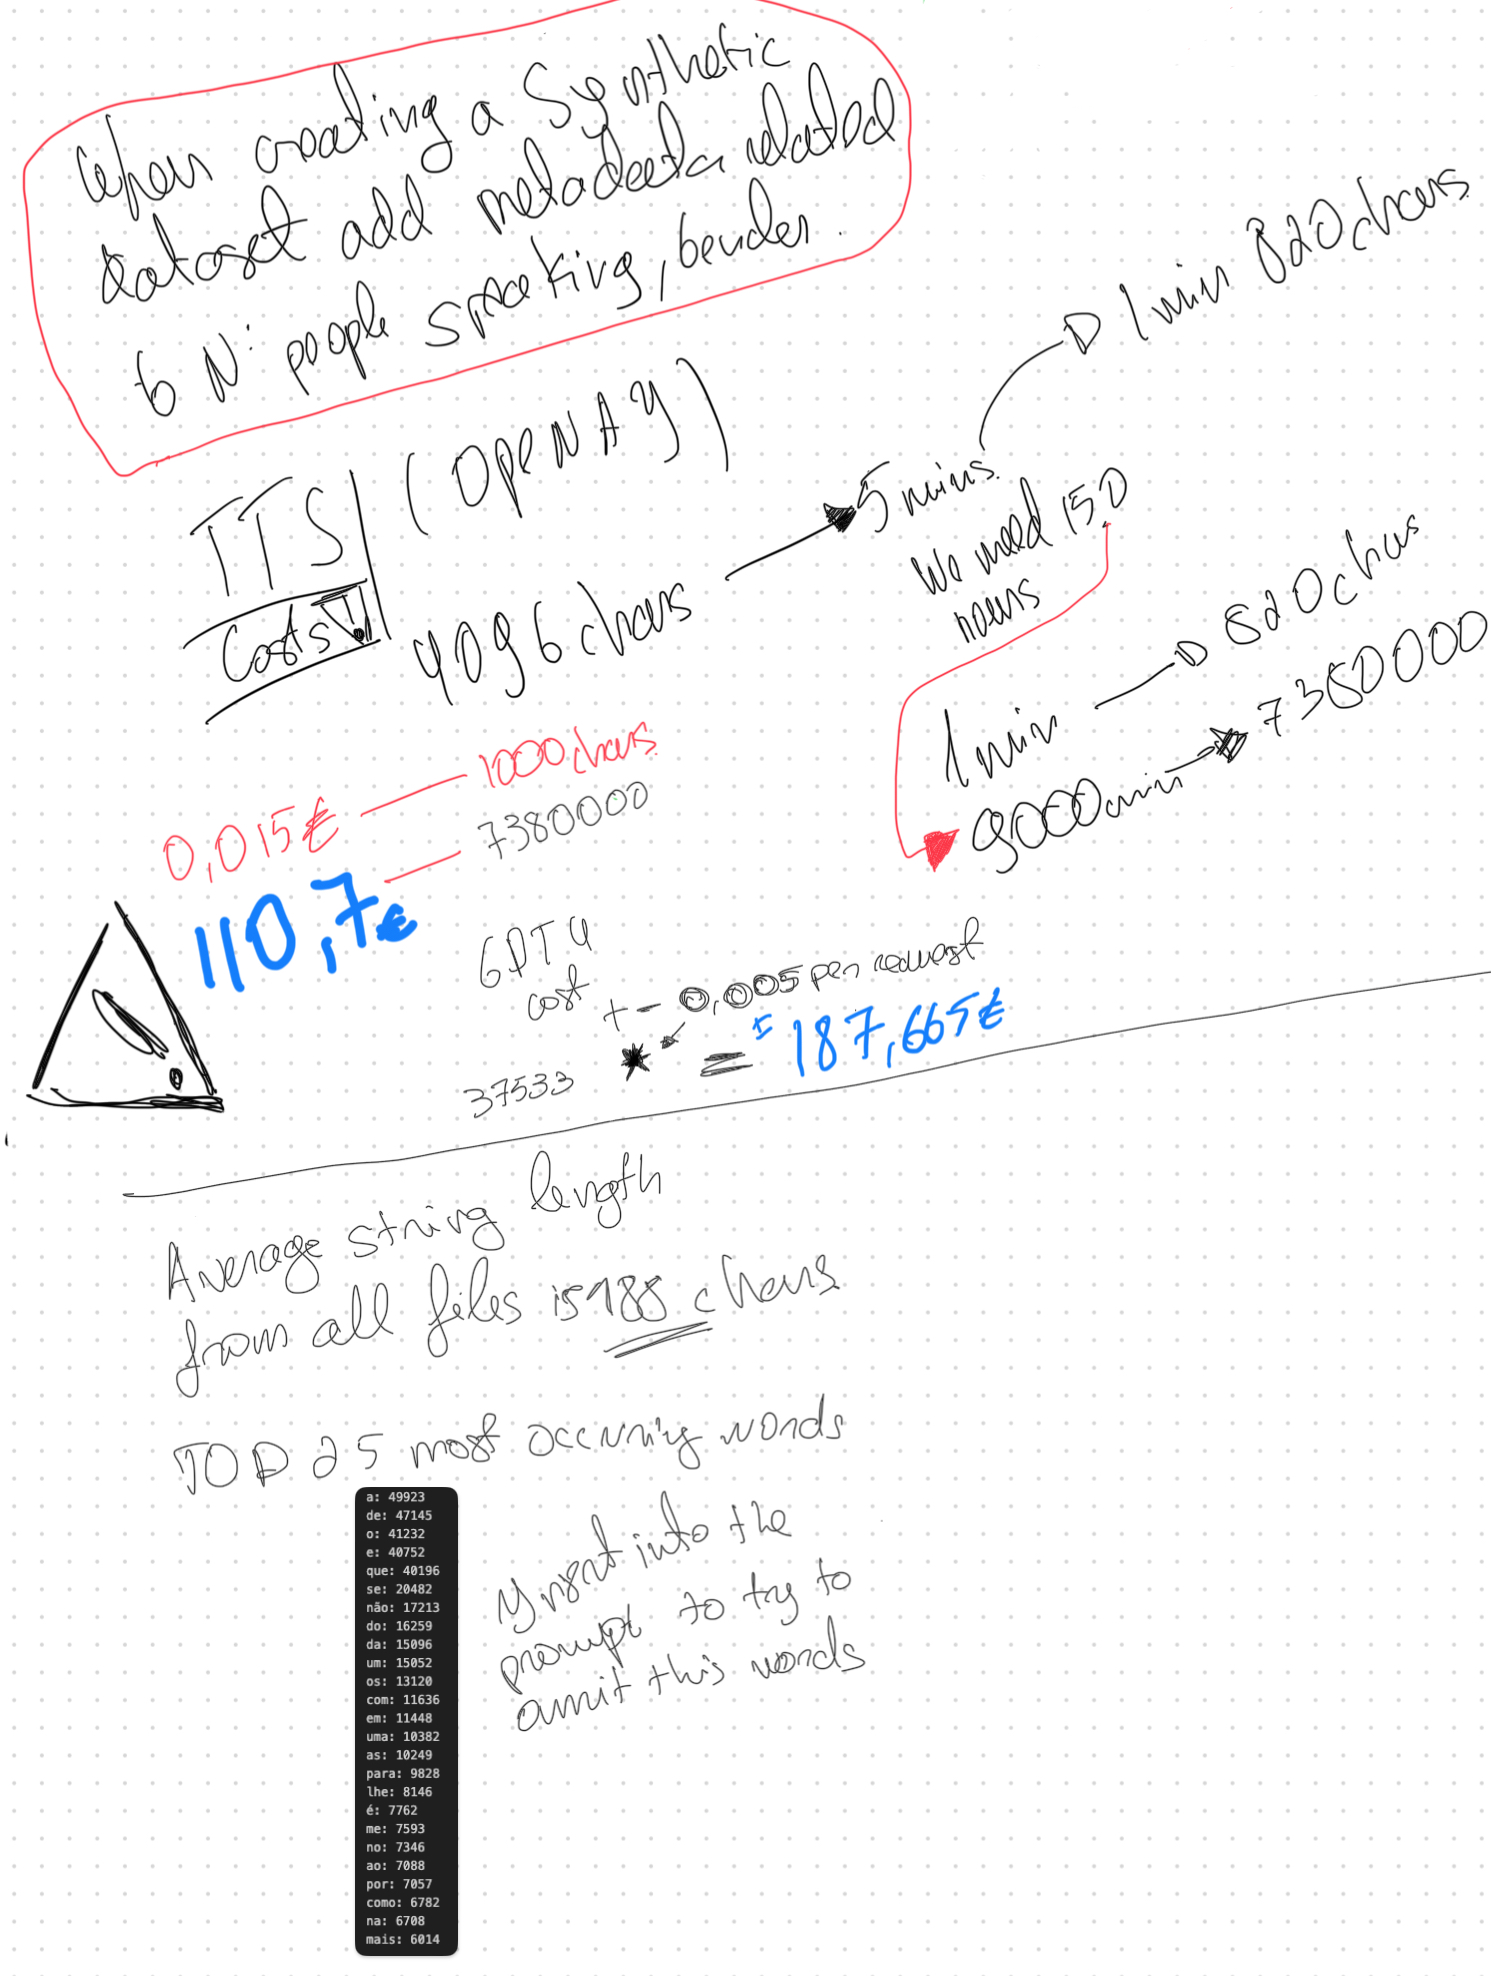 When creating a Synthetic
dataset add metadata related
to Nº people speaking, Gender.
TTS (OPENAY)
Costs!
4096 chars
5 mins.
1 min 820 chars
We need 150
hours
1 min
820 chars
9000 min
7380000
0,015€
1000 chars
110,7€
7380000
GPT4
cost
+- 0,005 per request
37533
*
= ± 187,665€
Average string length
from all files is 188 chars
TOP 25 most occurring words
a: 49923
de: 47145
o: 41232
e: 40752
que: 40196
se: 20482
não: 17213
do: 16259
da: 15096
um: 15052
os: 13120
com: 11636
em: 11448
uma: 10382
as: 10249
para: 9828
lhe: 8146
é: 7762
me: 7593
no: 7346
ao: 7088
por: 7057
como: 6782
na: 6708
mais: 6014
Ynsert into the
prompt to try to
omit this words